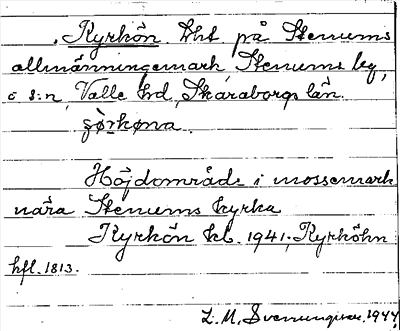 Kyrkön Lht på Stenums
allmänningsmark, Stenums by,
o s:n, Valle hrd, Skaraborgs län.
çø̀rkøna.
Höjdområde i mossemark
nära Stenums kyrka
Kyrkön kl. 1941. Kyrköhn
hfl. 1813.
L. M. Svenungsson, 1944